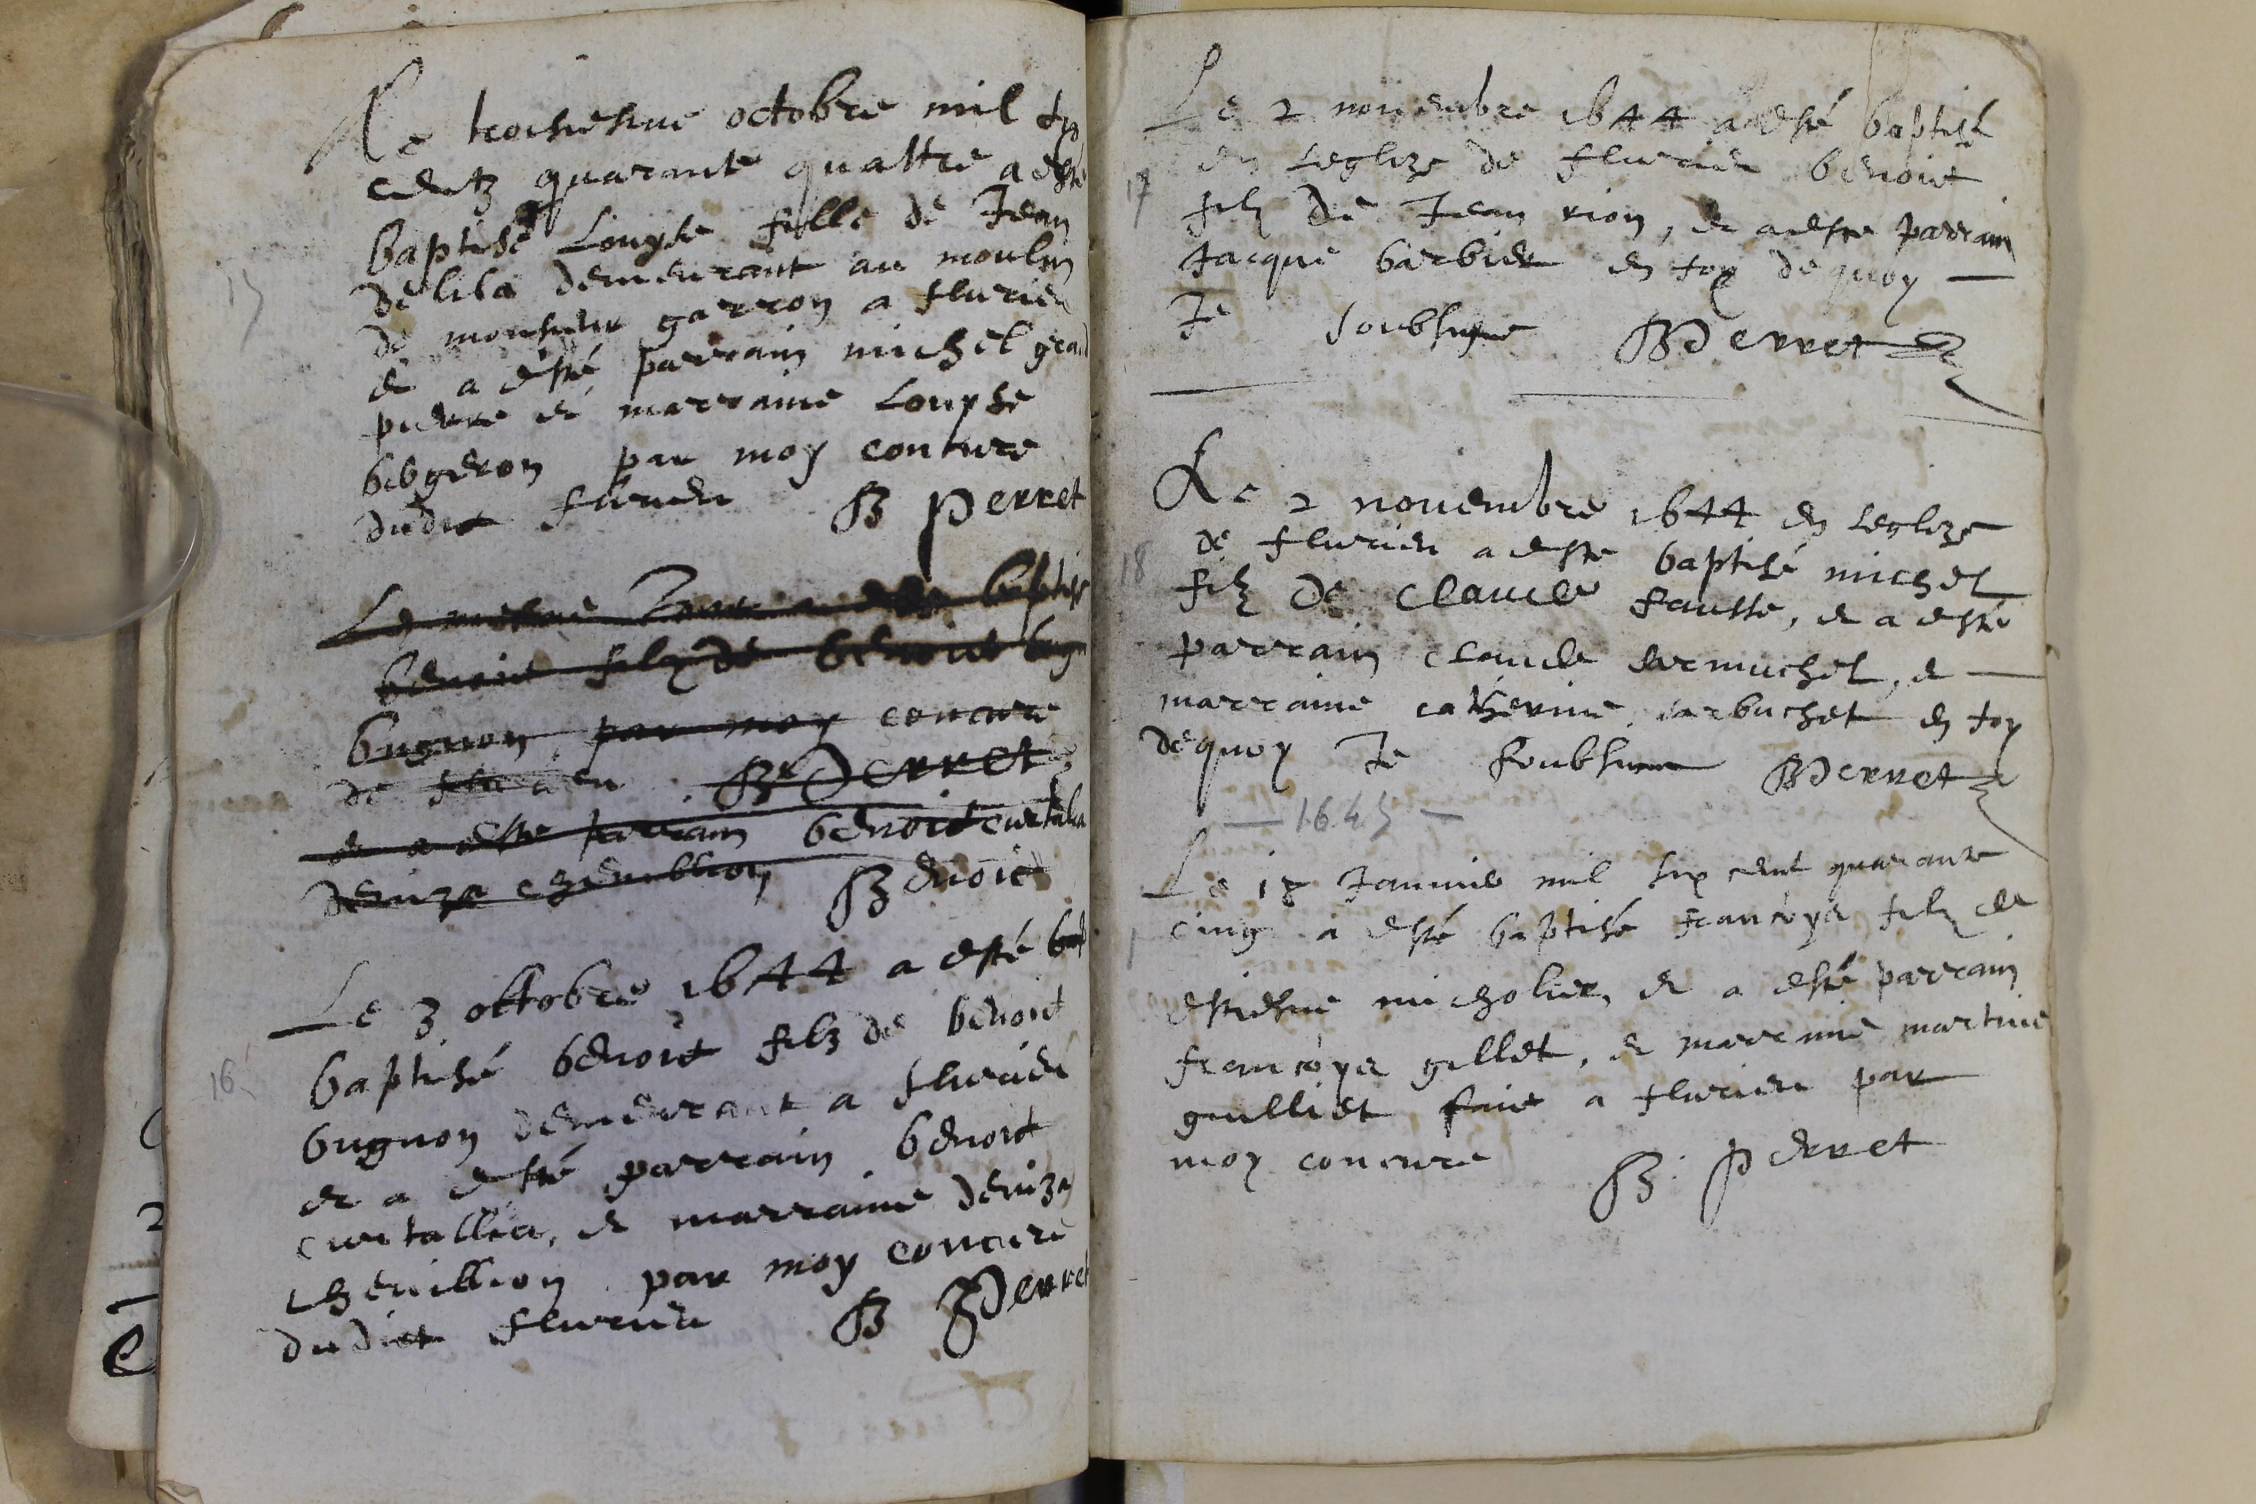 Le troisiesme octobre mil six
centz quarante quattre a esté
baptisé Louyse fille de Jean
delila demeurant au moulin
15
de monsieur garron a flurieu
et a esté parrain michel grand
pierre et marraine Louyse
bibgeron par moy concure
dudict flurieu B Perret
Le mesme Jour a esté baptisé
benoit filz de benoit bugn
bugnon par moy concure
de flurieu B Perret
et a esté parrain benoit curtalia
deniza chenillion Benoit
Le 3 octobre 1644 a esté bap
baptisé benoit filz de benoit
16
bugnon demeurant a flurieu
et a esté parrain benoit
curtallia, et marraine deniza
chenillion par moy concure
dudict flurieu B Perret
Le 2 novembre 1644 a esté baptisé
en leglize de flurieu benoit
17
filz de Jean rion, et a esté parrain
Jacque barbier en foy de quoy
Je soubsigne BPerret
Le 2 novembre 1644 en leglize
de flurieu a este baptisé michel
18
filz de Claude fausse, et a esté
parrain Claude, et
marraine catherine en foy
dequoy Je soubsigne BPerret
1645
Le 18 Janvier mil six cent quarante
cinq a esté baptisé francoys filz de
1
estiesne micholier, et a esté parrain
francoys gillet, et marraine martine
guilliet faict a flurieu par
moy concure B. Perret